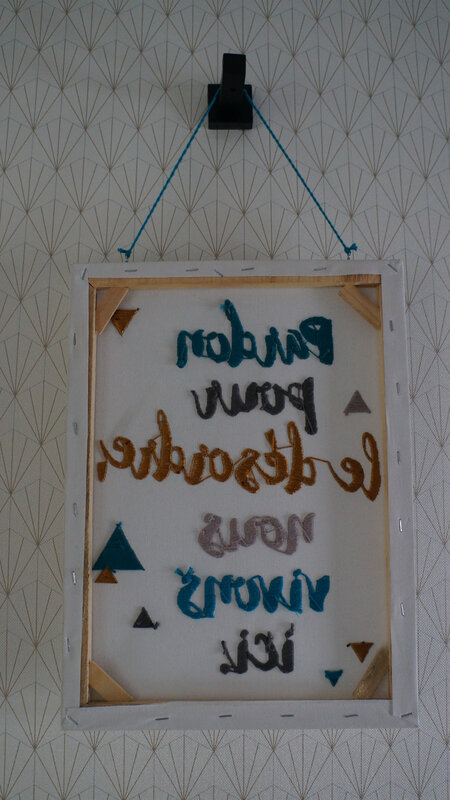 Pardon
pour
le désordre,
nous
vivons
ici.